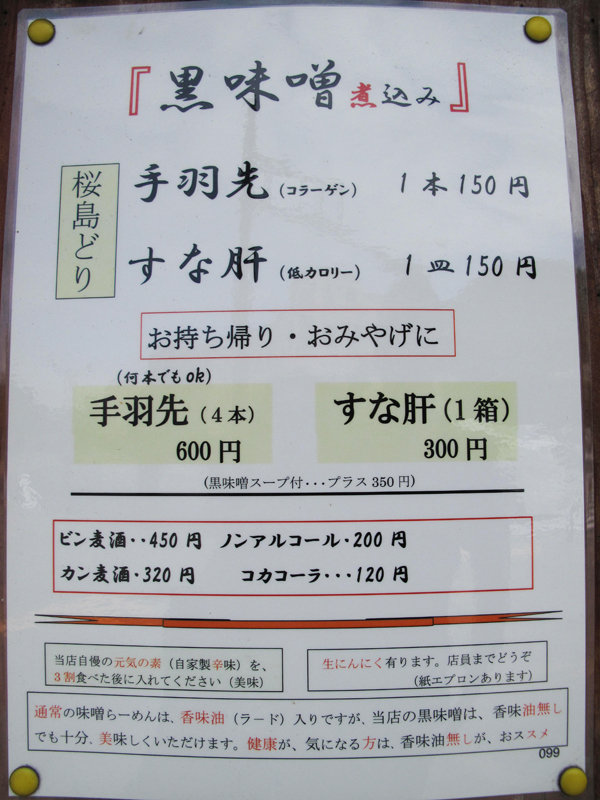 『黒味噌煮込み』
桜島どり
手羽先(コラーゲン) 1本150円
すな肝(低カロリー) 1皿150円
お持ち帰り・おみやげに
(何本でもok)
手羽先(4本)
600円
すな肝(1箱)
300円
(黒味噌スープ付・・・プラス350円)
ビン麦酒・・450円 ノンアルコール・200円
カン麦酒・320円 コカコーラ・・・120円
当店自慢の元気の素(自家製辛味)を、
3割食べた後に入れてください(美味)
生にんにく有ります。店員までどうぞ
(紙エプロンあります)
通常の味噌らーめんは、香味油(ラード)入りですが、当店の黒味噌は、香味油無し
でも十分、美味しくいただけます。健康が、気になる方は、香味油無しが、おススメ
099